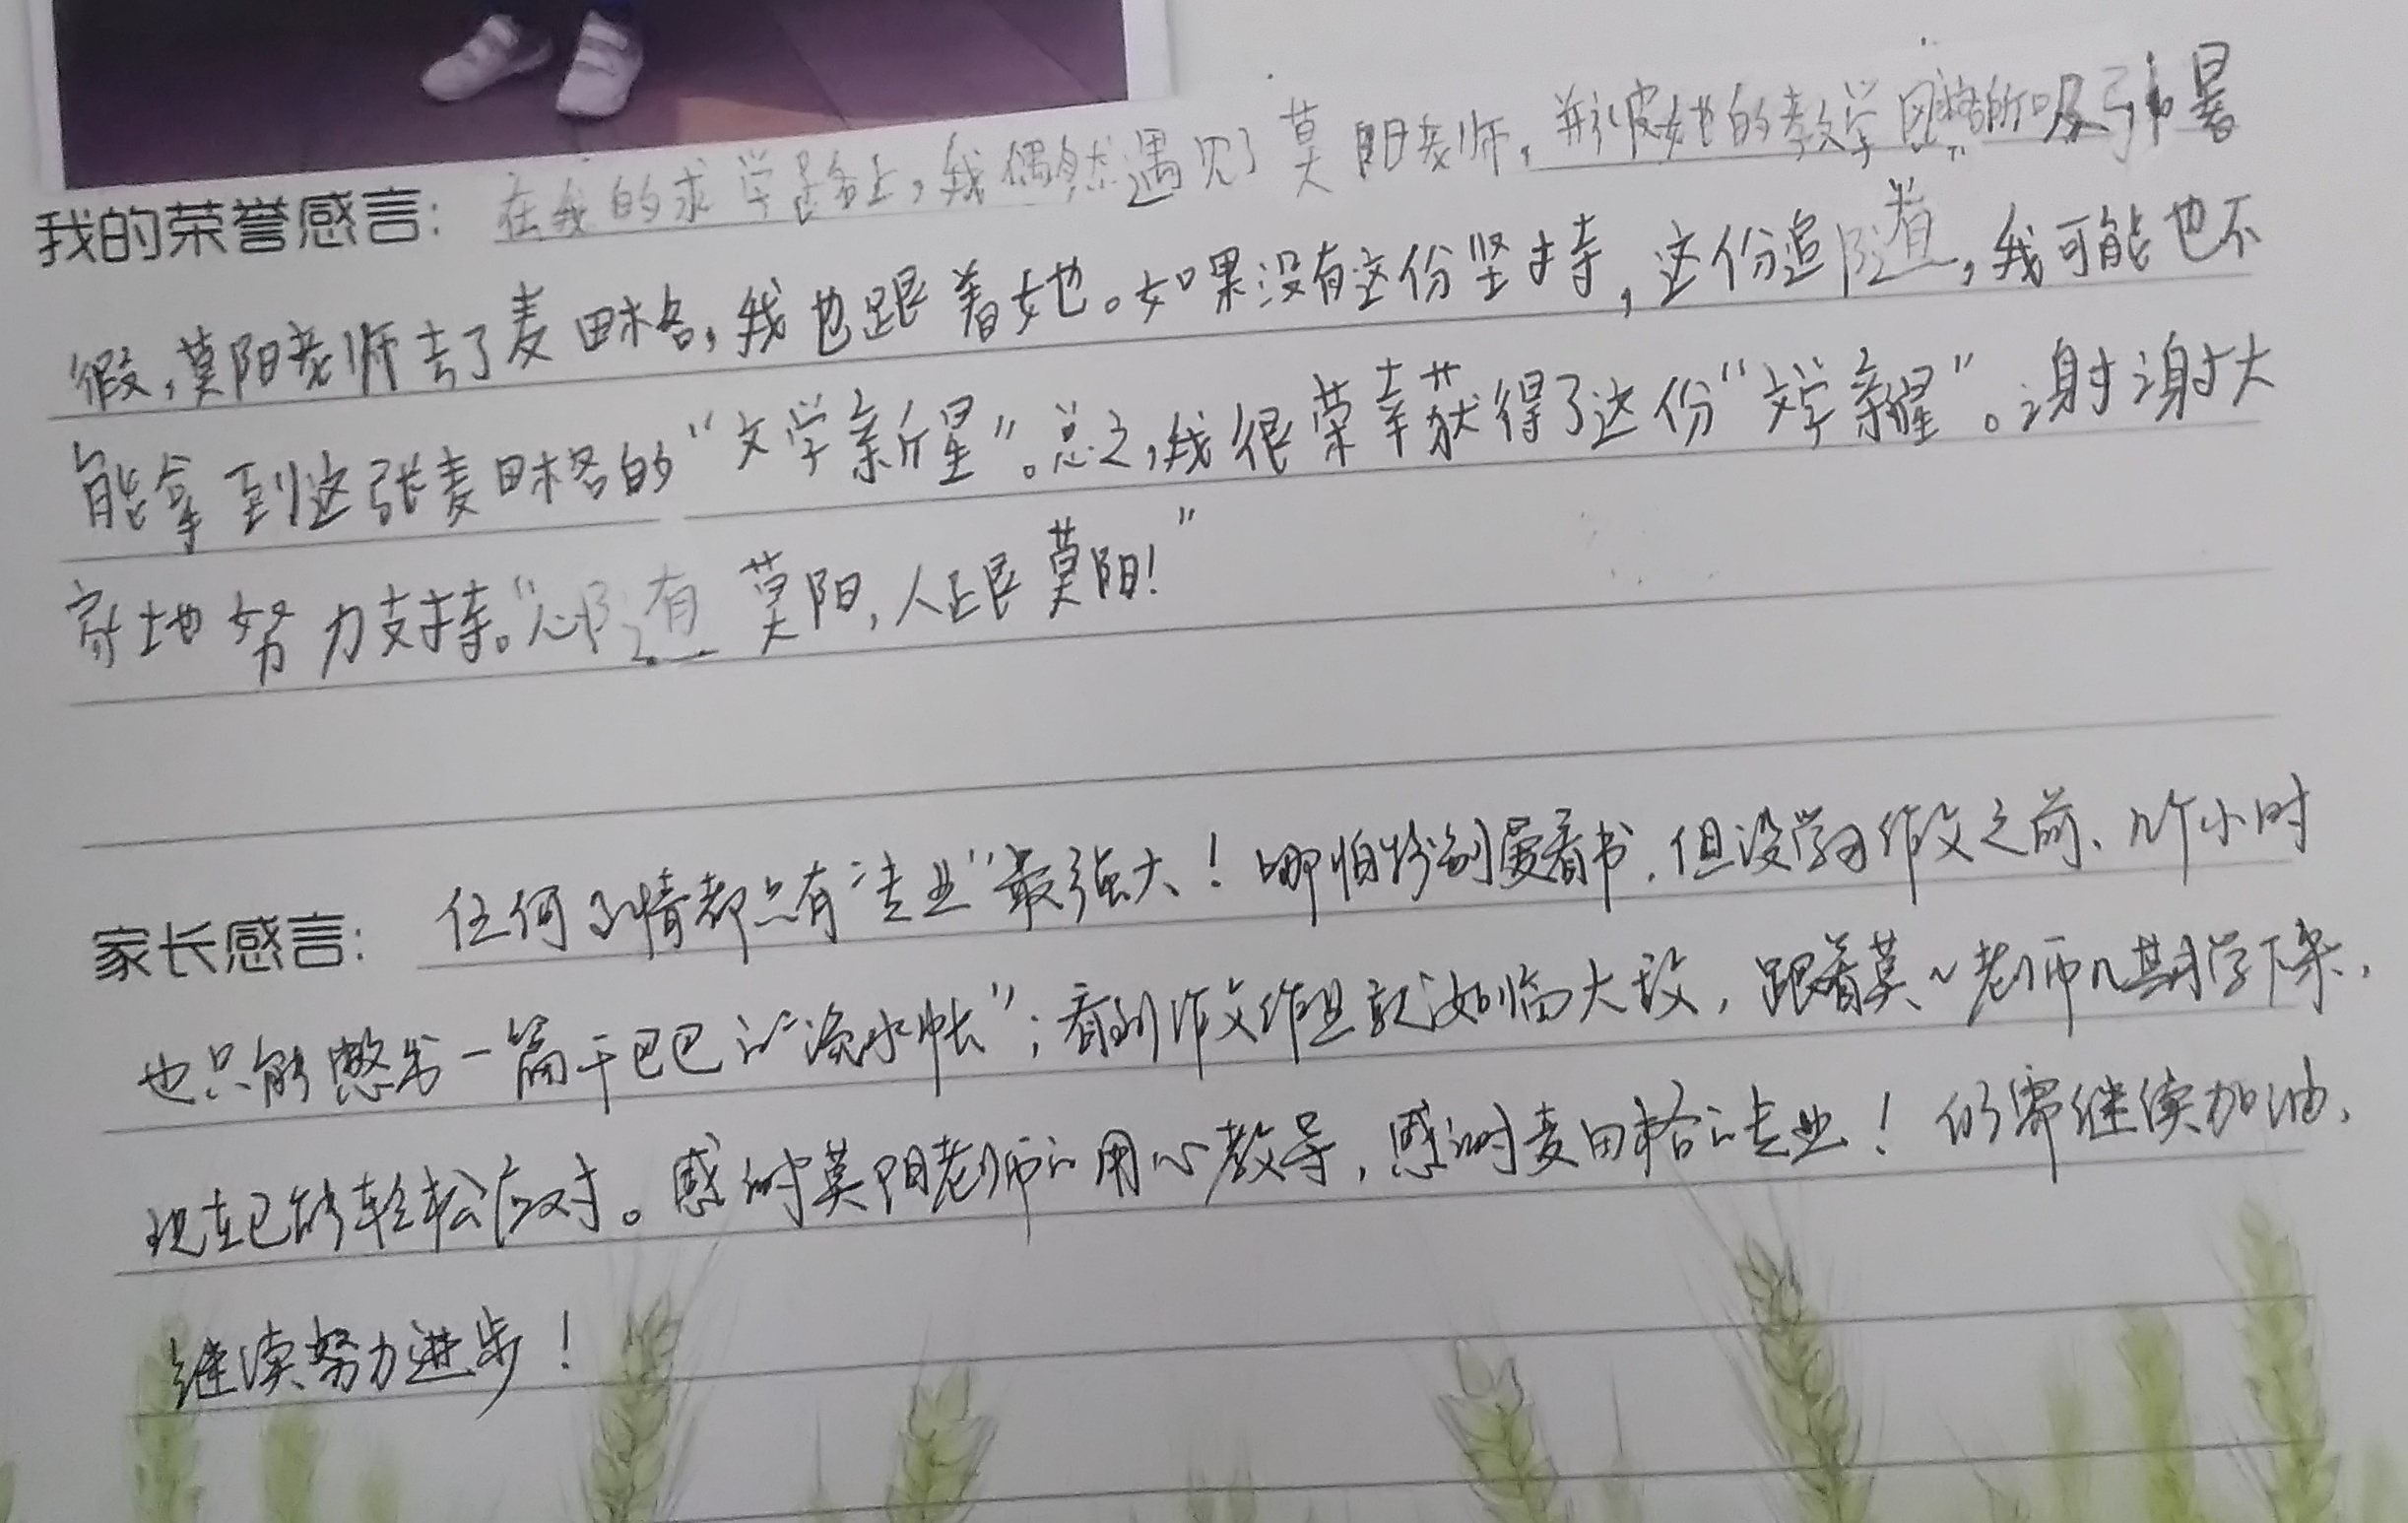 我的荣誉感言：在我的求学路上，我偶然遇见了莫阳老师，并被她的教学风格所吸引。暑
假，莫阳老师去了麦田格，我也跟着她。如果没有这份坚持，这份追随，我可能也不
能拿到这张麦田格的“文学新星”。总之，我很荣幸获得了这份“文学新星”。谢谢大
家地努力支持。“心随莫阳，人跟莫阳！”
家长感言：任何事情都只有“专业”最强大！哪怕爱看书，但没学习作文之前、几个小时
也只能憋出一篇干巴巴的“流水帐”；看到作文作业就如临大敌，跟着莫老师几期学下来，
现在已能轻松应对。感谢莫阳老师的用心教导，感谢麦田格的专业！仍需继续加油，
继续努力进步！